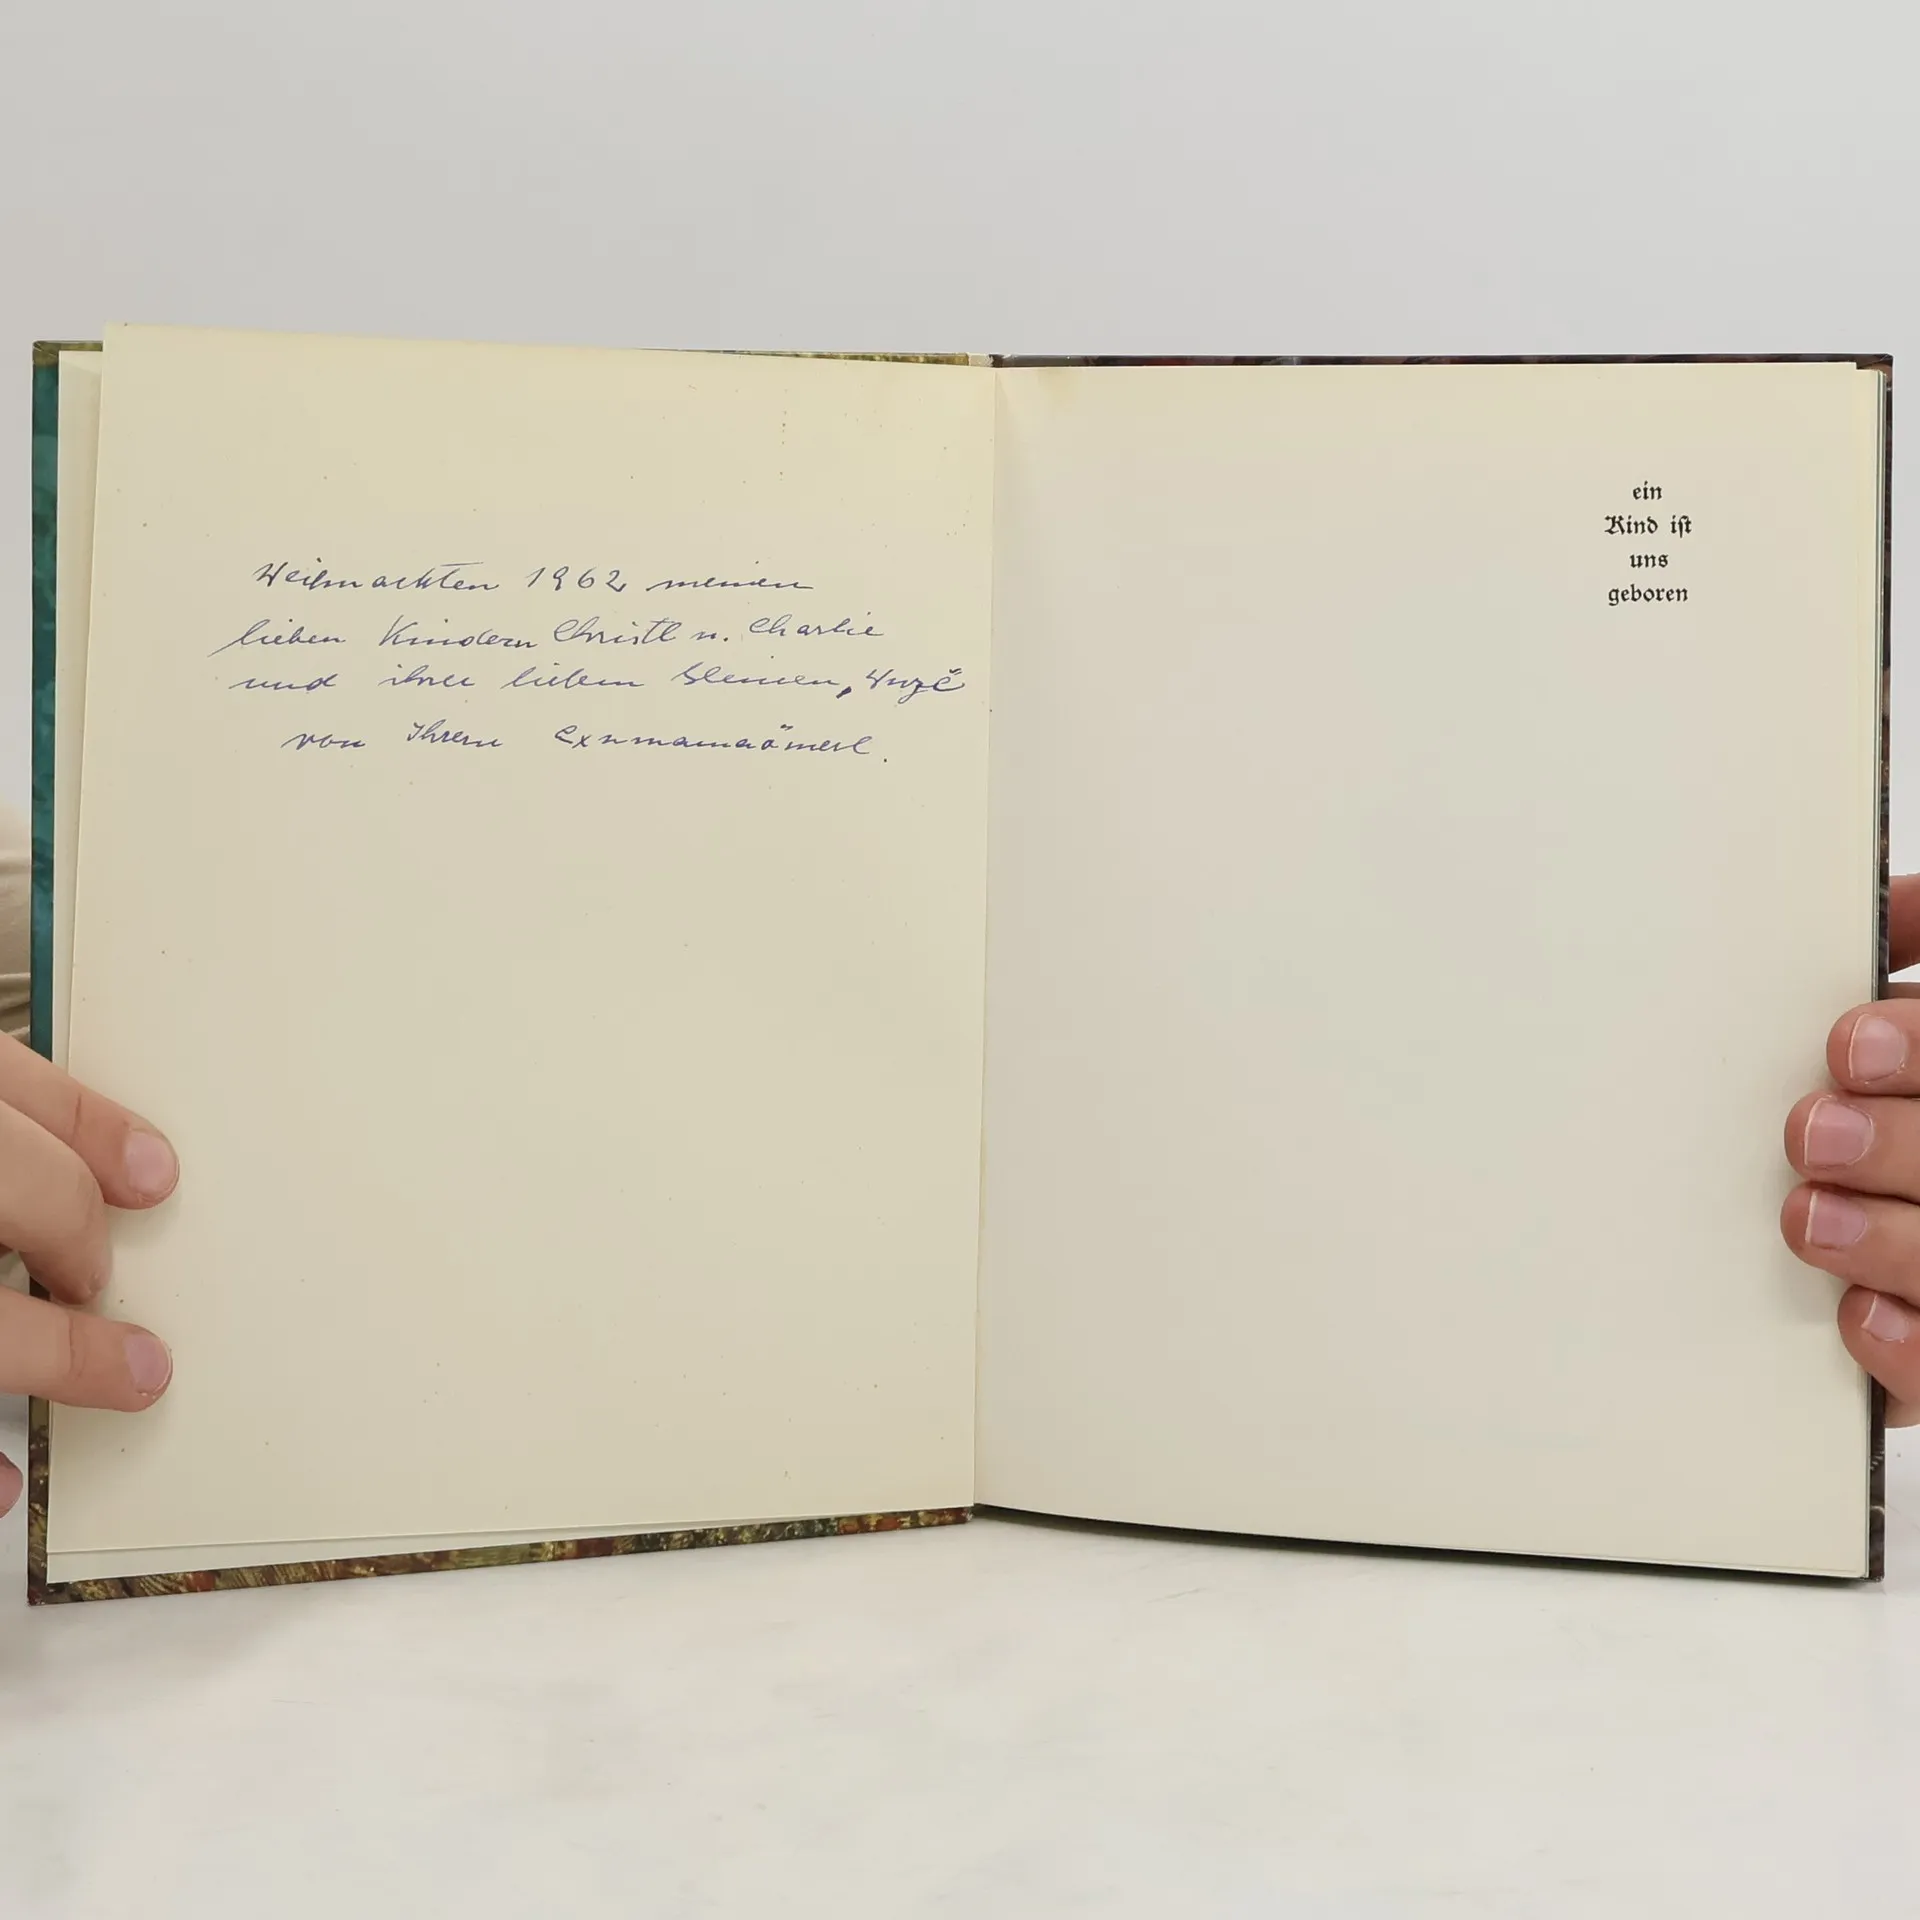 Weihnachten 1962 meinen
lieben Kindern Christl u. Charlie
und ihrer lieben kleinen
von Ihrem
ein
Kind ist
uns
geboren